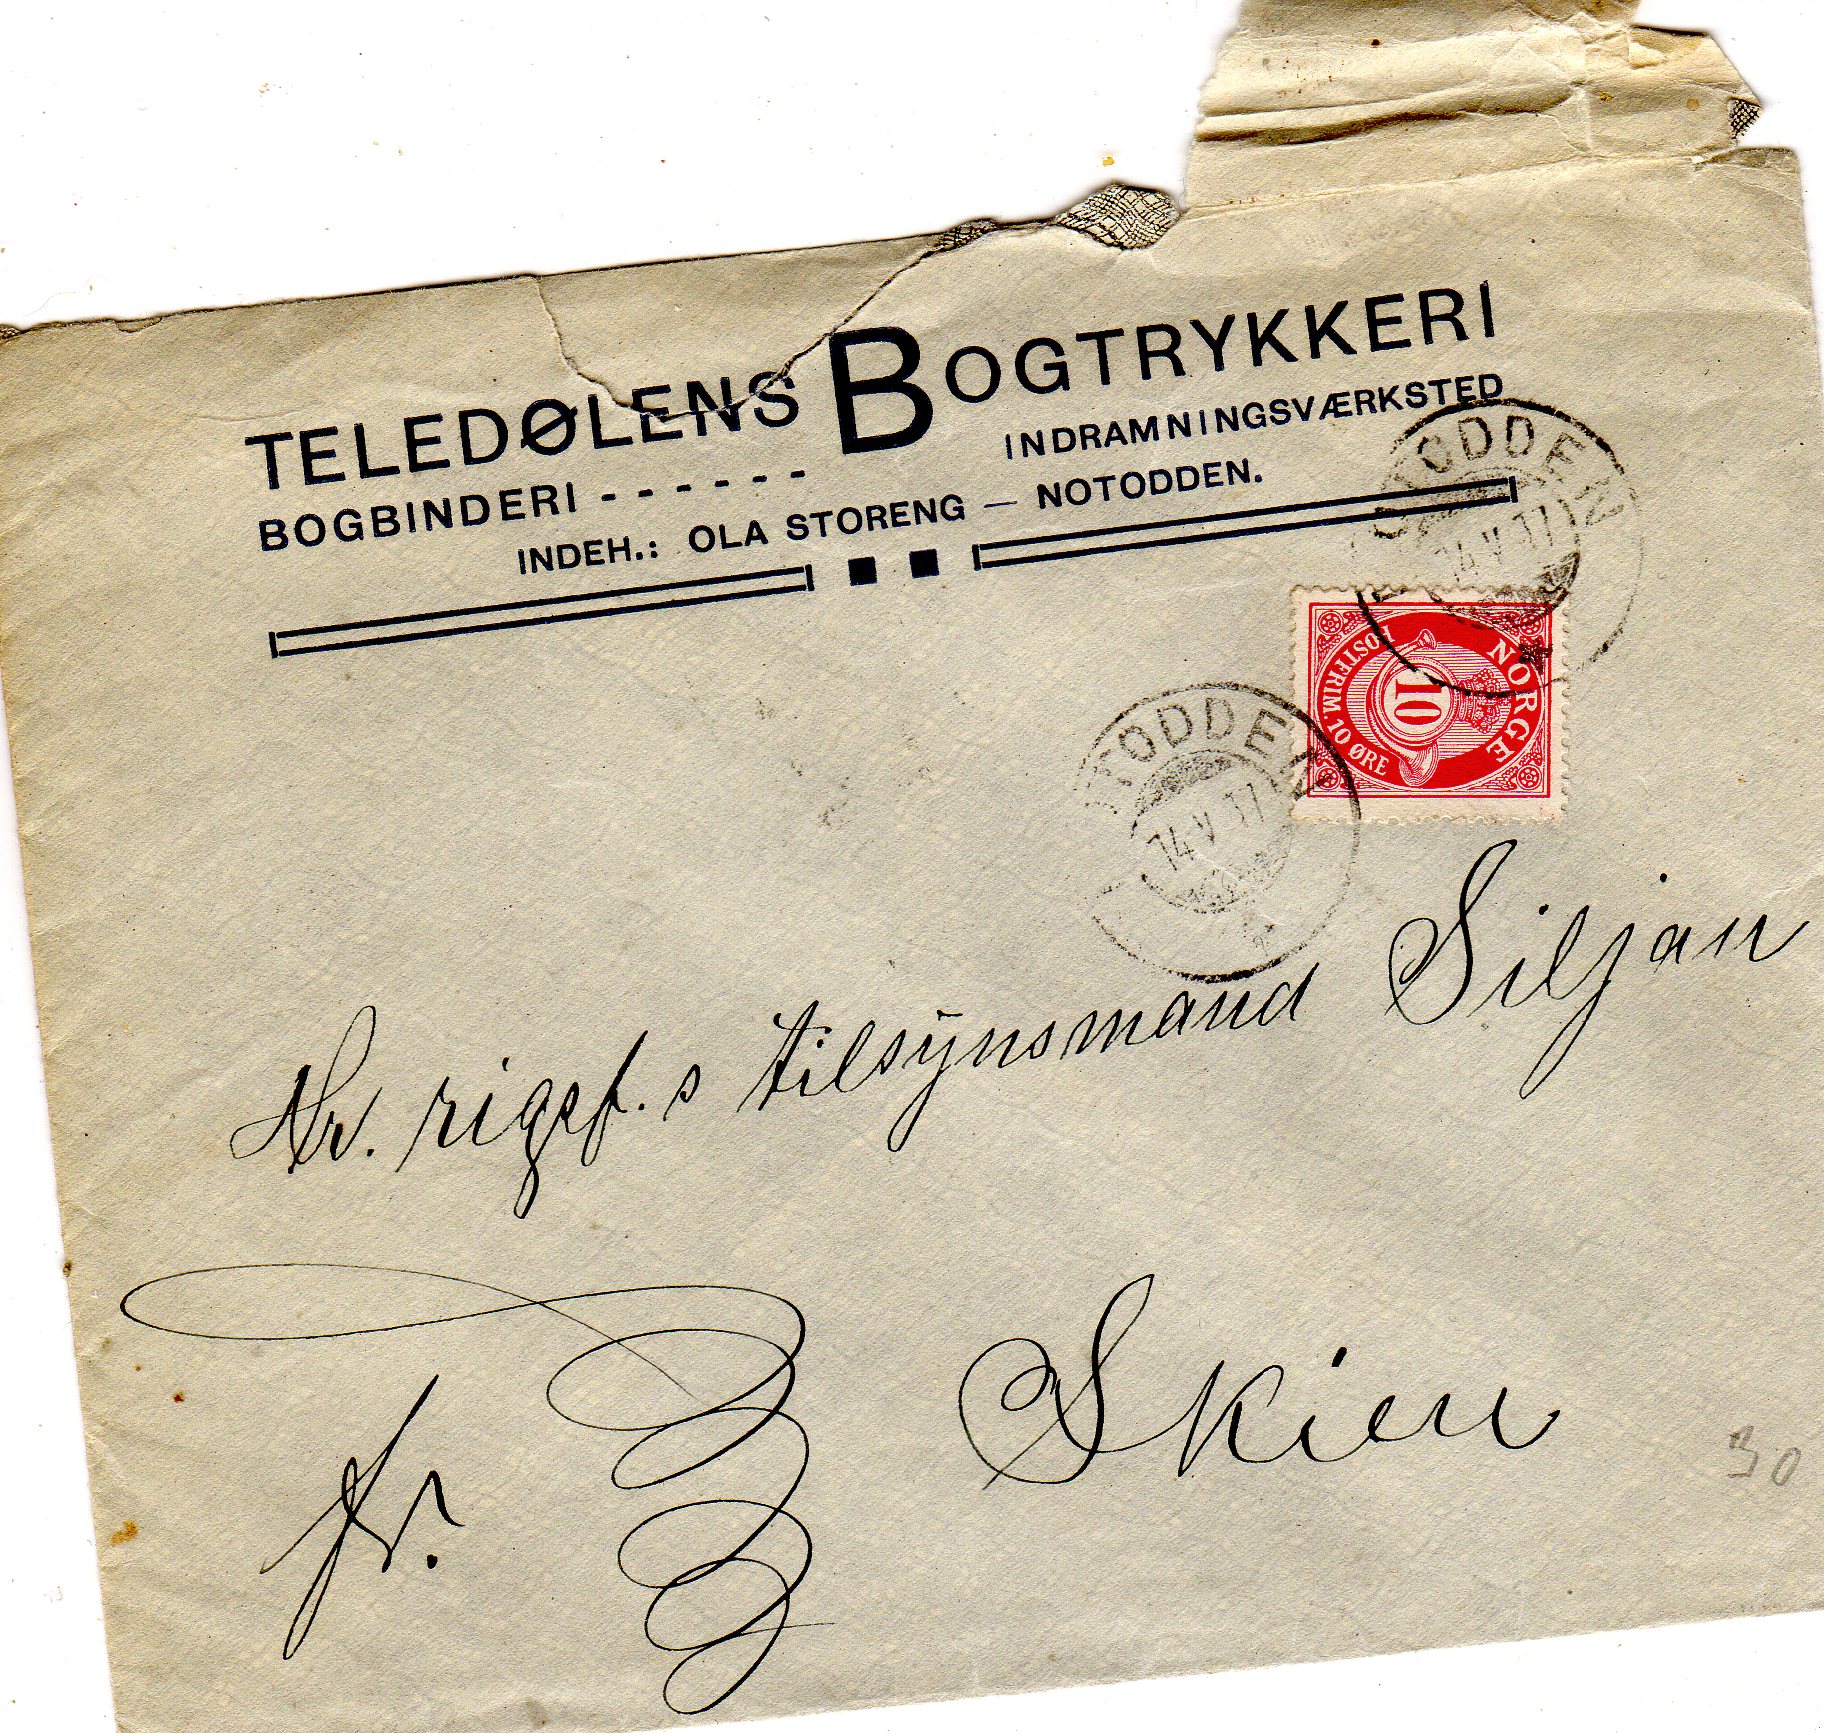 TELEDØLENS BOGTRYKKERI
BOGBINDERI - - - - - - INDRAMNINGSVÆRKSTED
INDEH.: OLA STORENG — NOTODDEN.
NOTODDEN
14 V 17
NORGE
POSTFRIM. 10 ØRE
10
TODDEN
14 V 17
Hr. rigsf.s tilsynsmand Siljan
pr. Skien
30